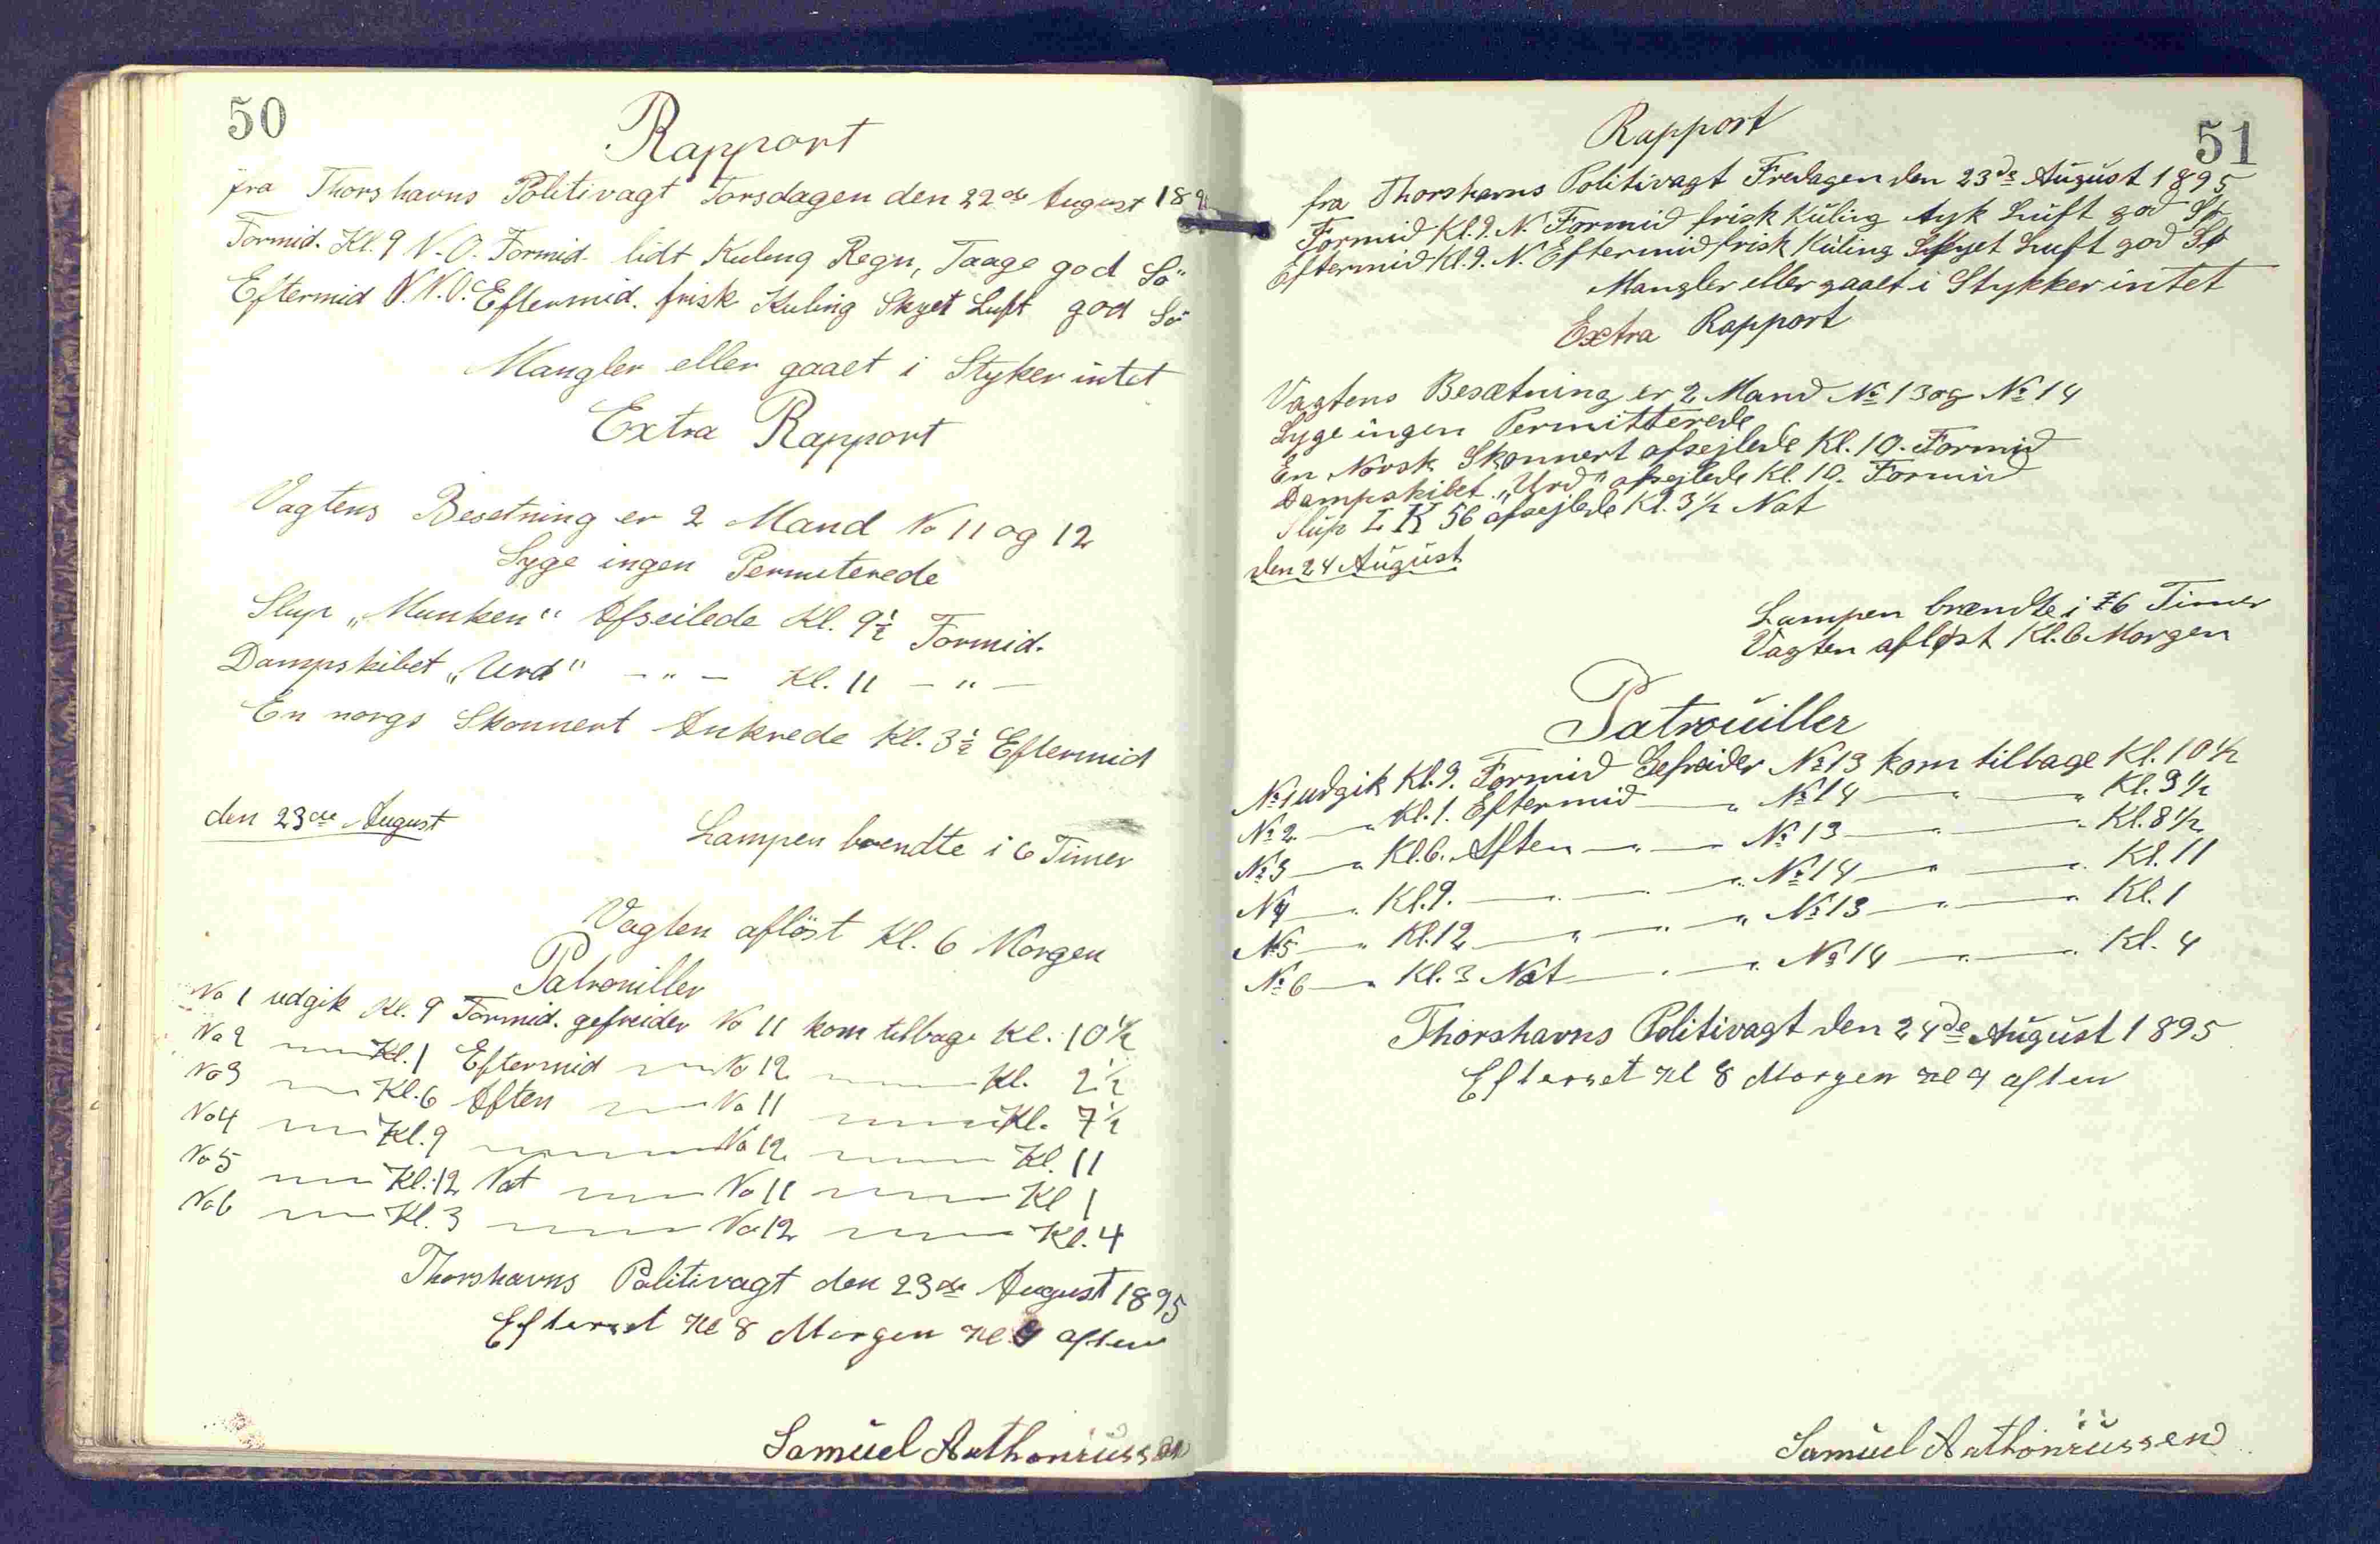 50
Rapport
fra Thorshavns Politivagt Torsdagen den 22de August 189
Formid. Kl. 9 N.O. Formid. lidt Kuling Regn, Taage god Sö
Eftermid N.N.O. Eftermid. frisk Kuling Skyet Luft god Sö
Mangler eller gaaet i Styker intet
Extra Rapport
Vagtens Besetning er 2 Mand No 11 og 12
Syge ingen Permiterede
Slup „Munken“ Afseilede Kl. 9½ Formid.
Dampskibet „Urd“ — „ — Kl. 11 — „ —
En norgs Skonnert Ankrede Kl. 3½ Eftermid
den 23de August
Lampen brendte i 6 Timer
Vagten aflöst Kl. 6 Morgen
Patrouiller
No 1 udgik Kl. 9 Formid. gefreider No 11 kom tilbage Kl. 10½
No 2 — „ — Kl. 1 Eftermid — „ — No 12 — „ — Kl. 2½
No 3 — „ — Kl. 6 Aften — „ — No 11 — „ — Kl. 7½
No 4 — „ — Kl. 9 — „ — No 12 — „ — Kl. 11
No 5 — „ — Kl. 12 Nat — „ — No 11 — „ — Kl 1
No 6 — „ — Kl. 3 — „ — No 12 — „ — Kl. 4
Thorshavns Politivagt den 23de August 1895
Efterset Kl 8 Morgen Kl 9 aften
Samüel Anthoniüssen
51
Rapport
fra Thorshavns Politivagt Fredagen den 23de Aügüst 1895
Formid Kl. 9. N. Formid frisk Küling tyk Lüft god Sø
Eftermid Kl. 9. N. Eftermid frisk Küling Skyet Luft god Sø
Mangler eller gaaet i Stykker intet
Extra Rapport
Vagtens Besætning er 2 Mand No 13 og No 14
Syge ingen Permitterede
En Norsk Skonnert afsejlede Kl. 10. Formid
Dampskibet „Urd“ afsejlede Kl. 10. Formid
Slüp L K 56 afsejlede Kl. 3½ Nat
den 24 Aügüst
Lampen brændte i 6 Timer
Vagten afløst Kl. 6 Morgen
Patroüiller
No 1 udgik Kl. 9. Formid Gefreider No 13 kom tilbage Kl. 10½
No 2 — „ Kl. 1. Eftermid — „ No 14 — „ — „ Kl. 3½
No 3 — „ Kl. 6. Aften — „ — No 13 — „ — „ Kl. 8½
N 4 — „ Kl. 9. — „ — „ No 14 — „ — „ Kl. 11
No 5 — „ Kl. 12 — „ — „ — „ No 13 — „ — „ Kl. 1
No 6 — „ Kl. 3 Nat — „ — „ No 14 — „ — „ Kl. 4
Thorshavns Politivagt den 24de Aügüst 1895
Efterset Kl 8 Morgen Kl 9 aften
Samüel Anthoniüssen